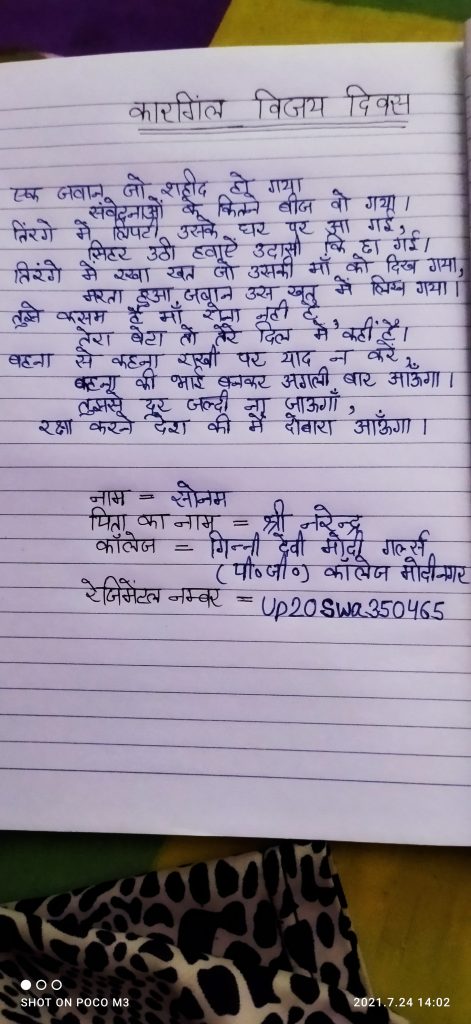 कारगिल विजय दिवस
एक जवान जो शहीद हो गया
संवेदनाओं के कितने बीज वो गया।
तिरंगे में लिपटा उसके घर पर आ गई,
सिहर उठी हवाएँ उदासी कि छा गई।
तिरंगे में रखा खत जो उसकी माँ को दिख गया,
मरता हुआ जवान उस खत में लिख गया।
तुझे कसम है माँ रोना नही है,
तेरा बेटा तो तेरे दिल में कहीं है।
बहना से कहना राखी पर याद न करे,
बहना की भाई बनकर अगली बार आँऊगा।
तुमसे दूर जल्दी ना जाऊगाँ,
रक्षा करने देश की मैं दोबारा आऊँगा।
नाम = सोनम
पिता का नाम = श्री नरेन्द्र
कॉलेज = गिन्नी देवी मोदी गर्ल्स
(पी०जी०) कॉलेज मोदीनगर
रेजिमेंटल नम्बर = UP20SWA350465
SHOT ON POCO M3
2021.7.24 14:02